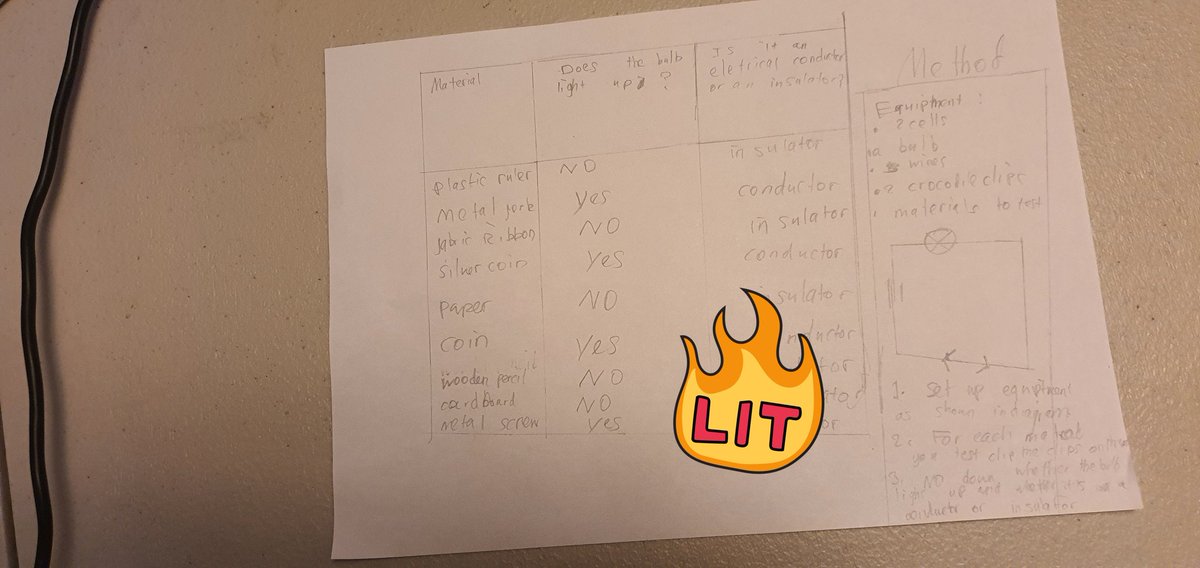 Material
Does the bulb
light up ?
Is it an
eletrical conductor
or an insulator?
plastic ruler NO insulator
metal fork yes conductor
fabric Ribbon NO insulator
silver coin yes conductor
paper NO sulator
coin yes nductor
wooden pencil NO tor
cardboard NO tor
metal screw yes or
LIT
Method
Equiptment:
• 2 cells
• a bulb
• wires
• 2 crocodile clips
• materials to test
1. Set up equiptment
as shown in diagram
2. For each
you test clip the clips
3. down whether the bulb
light up and whether it's a
conductor or insulator